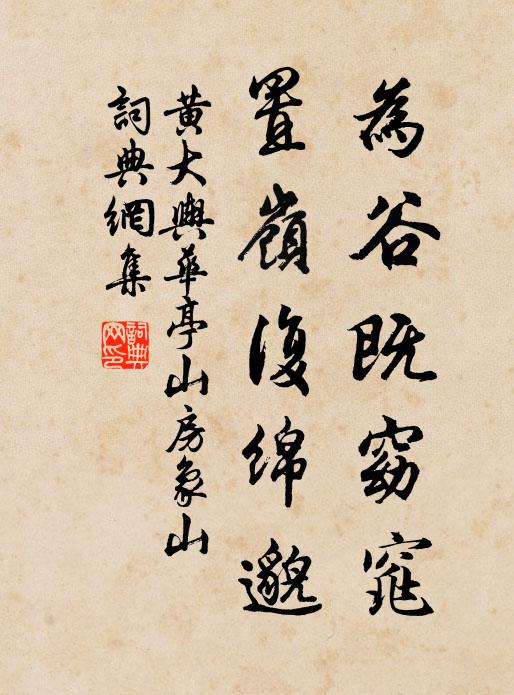 為谷既窈窕
置嶺復綿邈
黃大輿華亭山房象山
詞典網集
詞典
网印